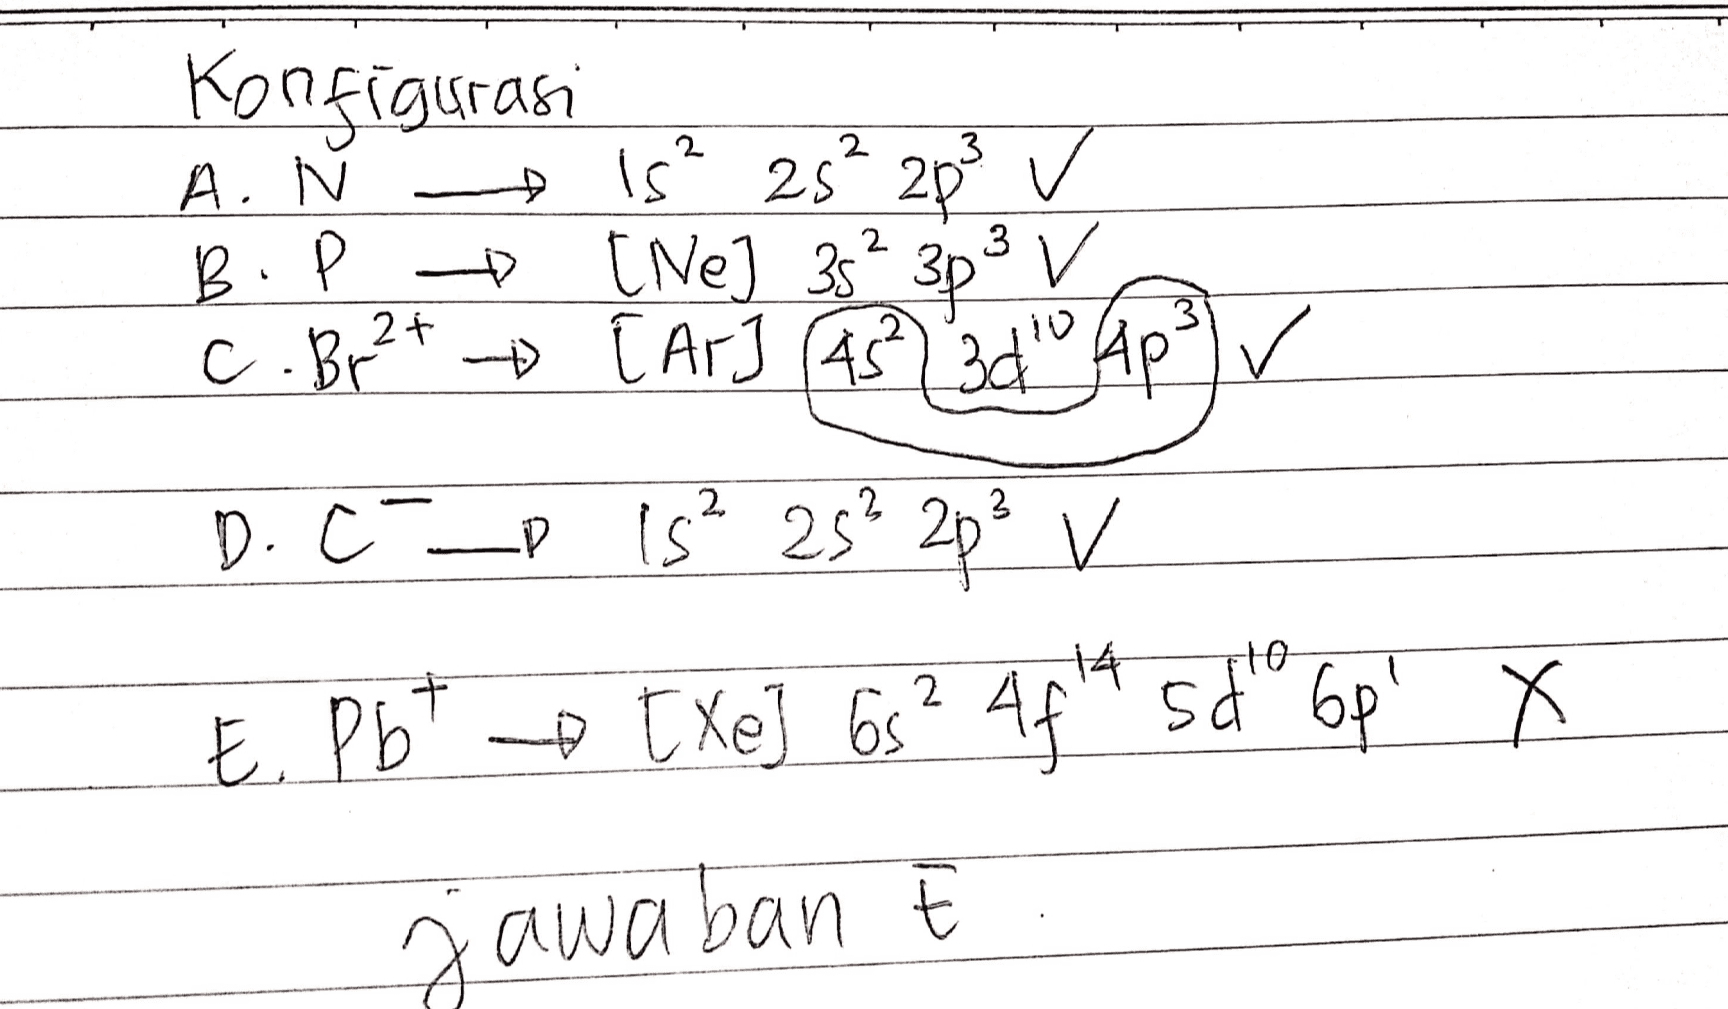 Konfigurasi
A. N → 1s² 2s² 2p³ ✓
B. P → [Ne] 3s² 3p³ ✓
C. Br²⁺ → [Ar] 4s² 3d¹⁰ 4p³ ✓
D. C⁻ → 1s² 2s² 2p³ ✓
E. Pb⁺ → [Xe] 6s² 4f¹⁴ 5d¹⁰ 6p¹ X
jawaban E.